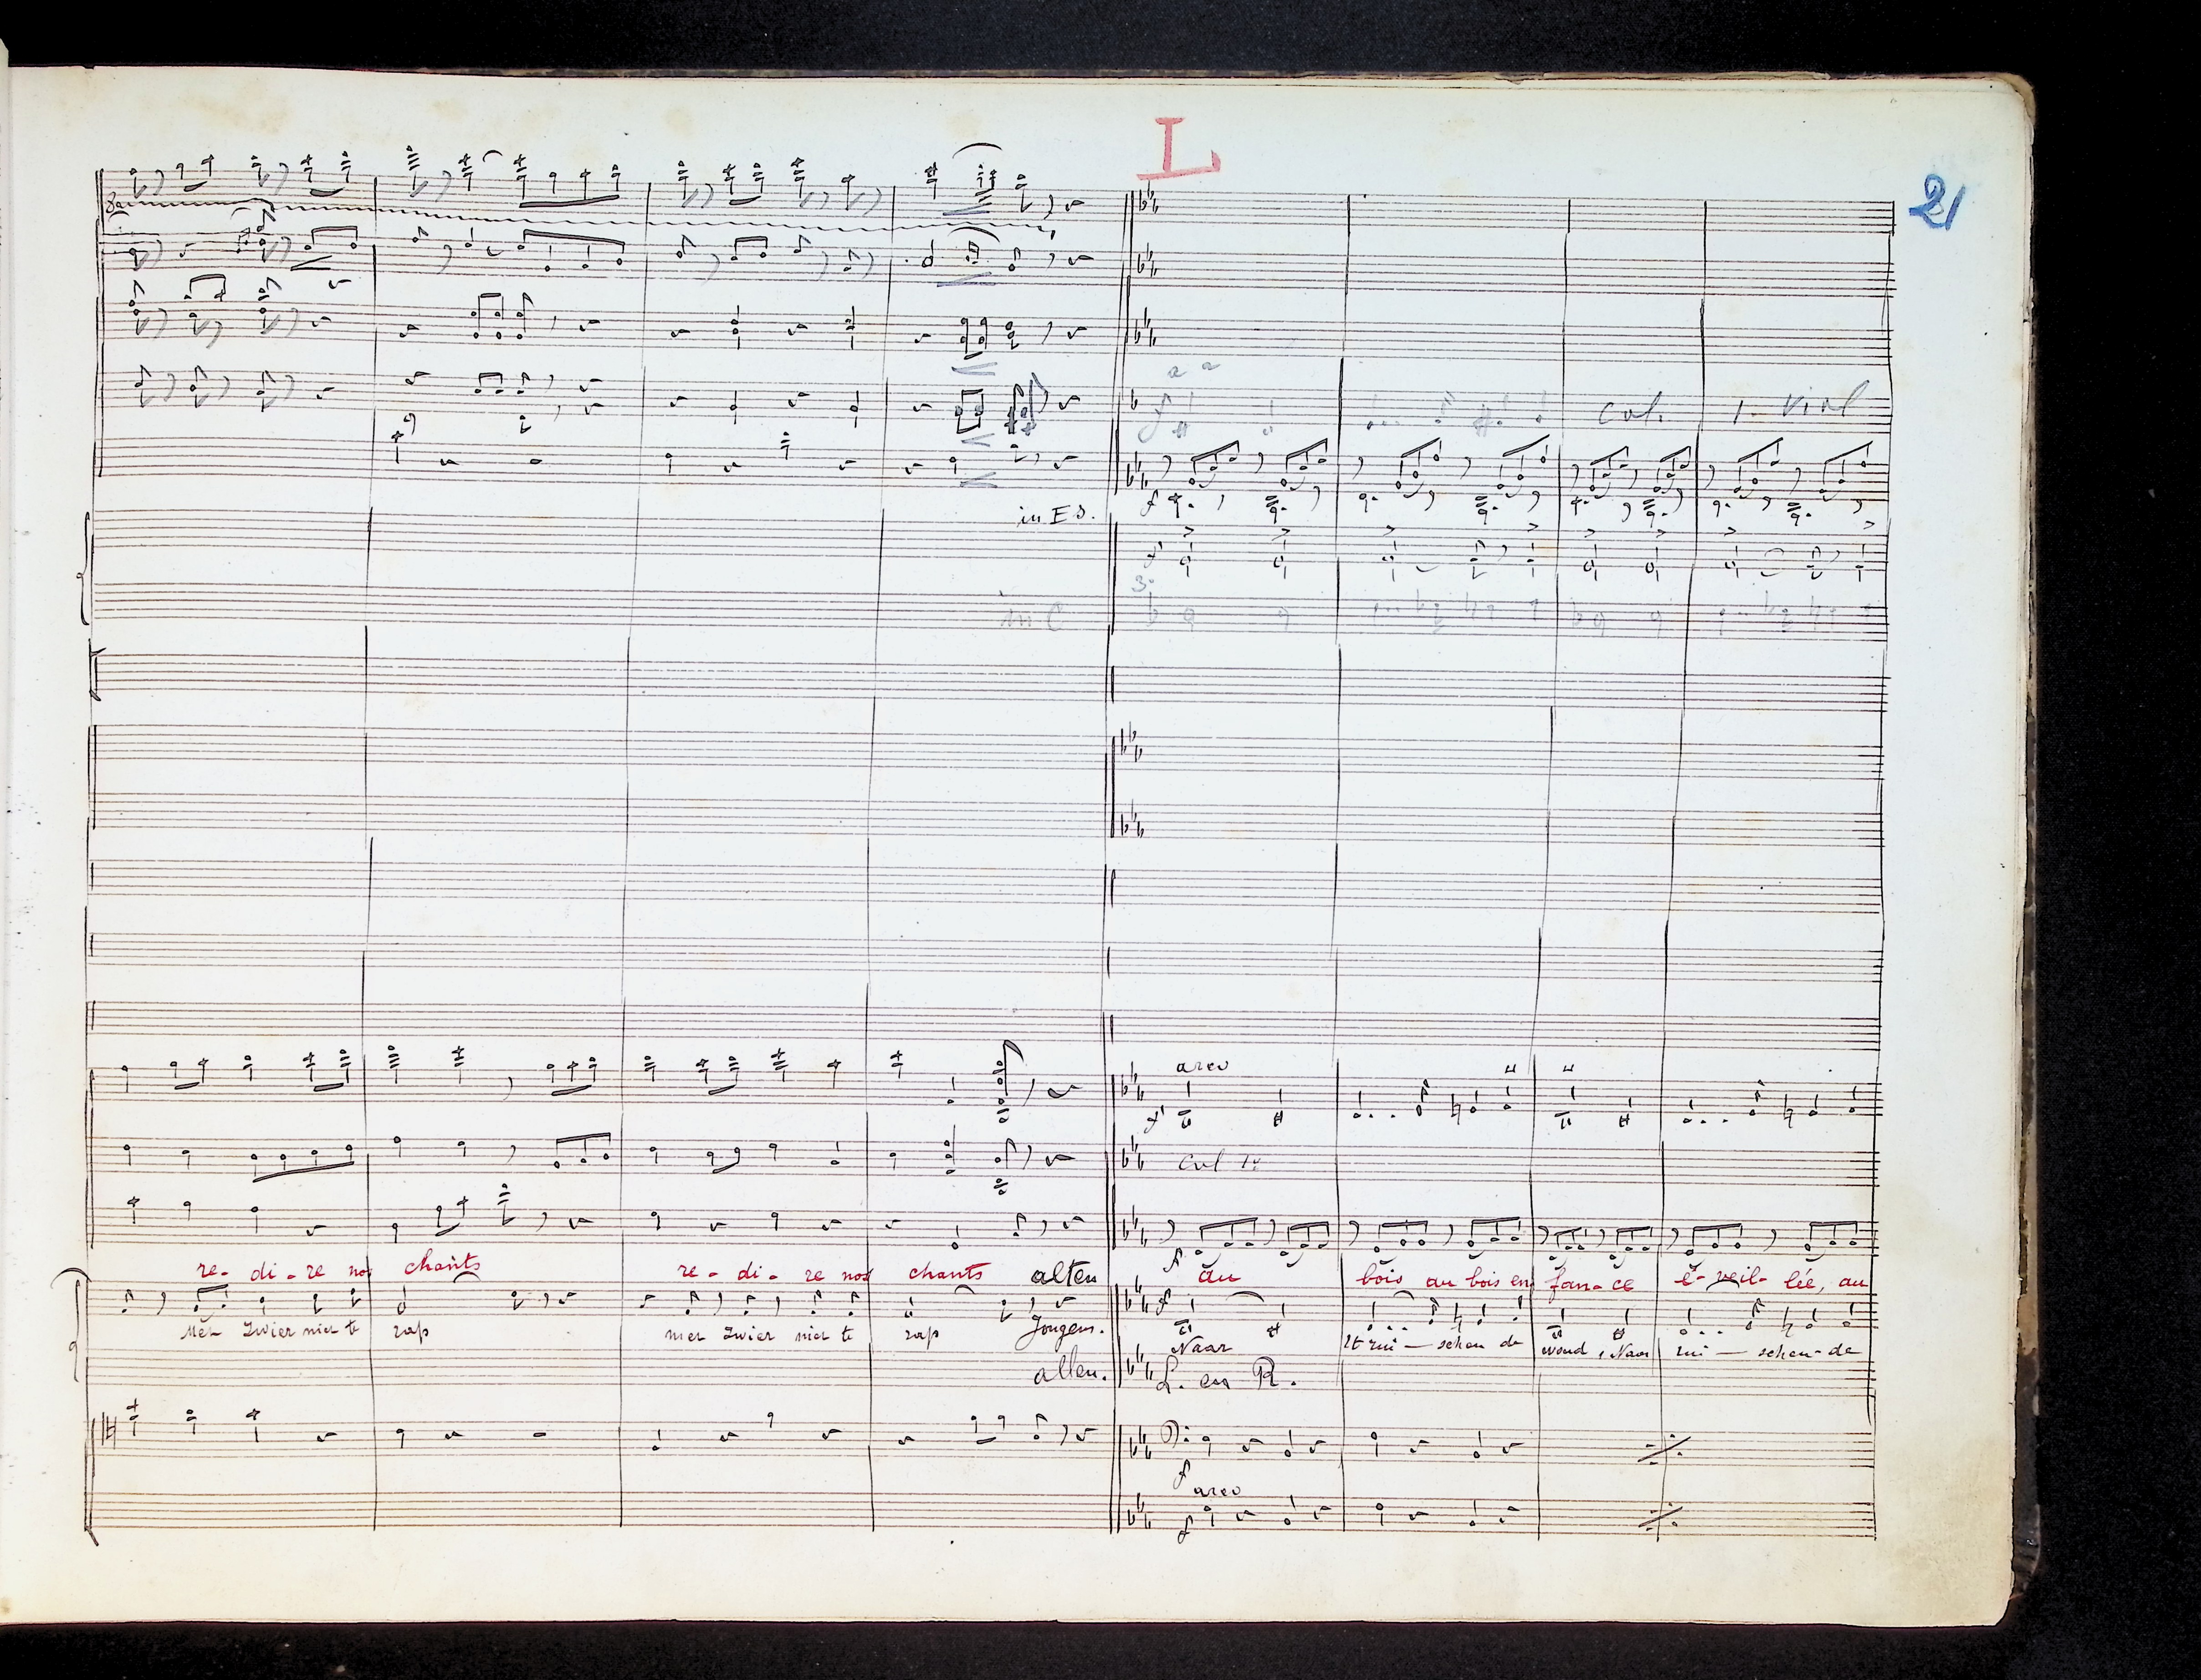 L
21
8va
a a
f
col. 1. viol
in Es.
f
f
3º
in C
arco
f
col 1º
f
re- di- re nos chants re- di- re nos chants alten au bois au bois en fan-ce é-veil-lée, au
f
zwier niet te rap niet zwier niet te rap Jongens. Naar 't rui - schen de woud, Naar rui - schen-de
alten. L. en R.
f
arco
f